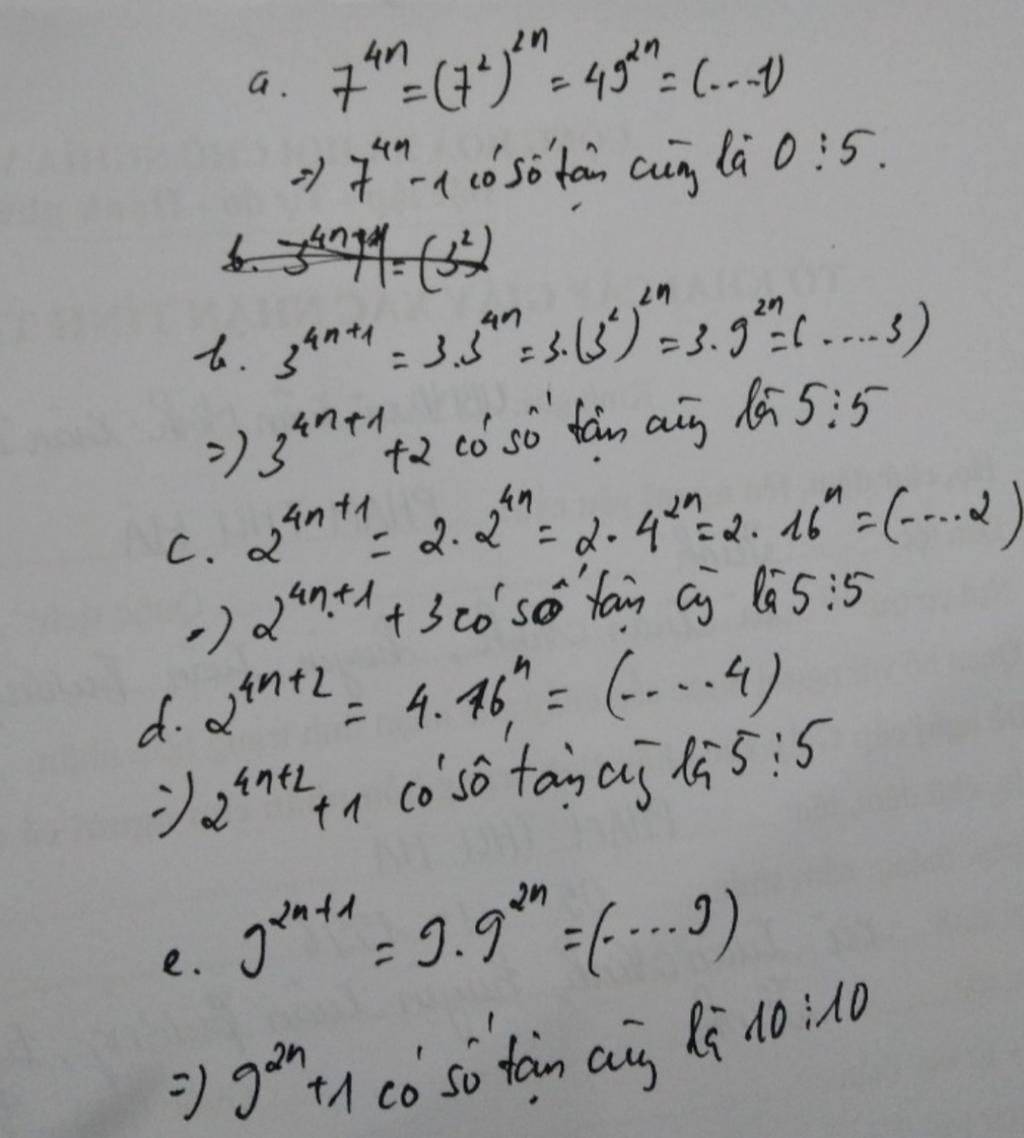 a. 7^{4n} = (7^2)^{2n} = 49^{2n} = (...1)
=> 7^{4n} - 1 có số tận cùng là 0 ⋮ 5.
b. 3^{4n+1} = 3.3^{4n} = 3.(3^2)^{2n} = 3.9^{2n} = (....3)
=> 3^{4n+1} + 2 có số tận cùng là 5 ⋮ 5
c. 2^{4n+1} = 2.2^{4n} = 2.4^{2n} = 2.16^n = (....2)
=> 2^{4n+1} + 3 có số tận cg là 5 ⋮ 5
d. 2^{4n+2} = 4.16^n = (....4)
=> 2^{4n+2} + 1 có số tận cg là 5 ⋮ 5
e. 9^{2n+1} = 9.9^{2n} = (....9)
=> 9^{2n} + 1 có số tận cùng là 10 ⋮ 10